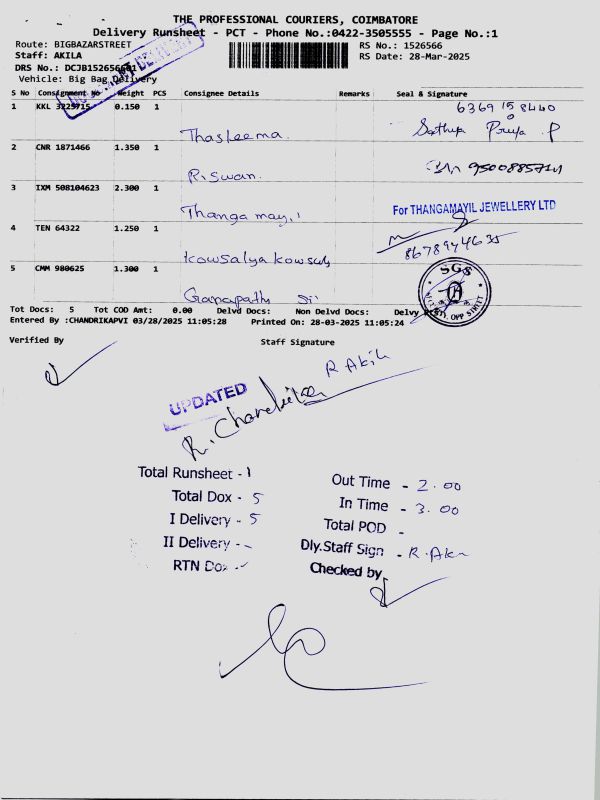 THE PROFESSIONAL COURIERS, COIMBATORE
Delivery Runsheet - PCT - Phone No.:0422-3505555 - Page No.:1
Route: BIGBAZARSTREET RS No.: 1526566
Staff: AKILA RS Date: 28-Mar-2025
DRS No.: DCJB152656661
Vehicle: Big Bag Delivery
S No Consignment No Weight PCS Consignee Details Remarks Seal & Signature
1 KKL 3225715 0.150 1 Thasleema. 6369 15 8440
Sathya Priya .P
2 CNR 1871466 1.350 1 Riswan. 9500885714
3 IXM 508104623 2.300 1 Thanga mayil For THANGAMAYIL JEWELLERY LTD
4 TEN 64322 1.250 1 Kowsalya 8678974635
5 CMM 980625 1.300 1 Ganapathy SGS
OPP STREET
Tot Docs: 5 Tot COD Amt: 0.00 Delvd Docs: Non Delvd Docs: Delvy
Entered By :CHANDRIKAPVI 03/28/2025 11:05:28 Printed On: 28-03-2025 11:05:24
Verified By Staff Signature
R Akila
UPDATED
R. Chandrika
Total Runsheet - 1
Total Dox - 5
I Delivery - 5
II Delivery -
RTN Dox -
Out Time - 2.00
In Time - 3.00
Total POD -
Dly.Staff Sign - R.Akila
Checked by